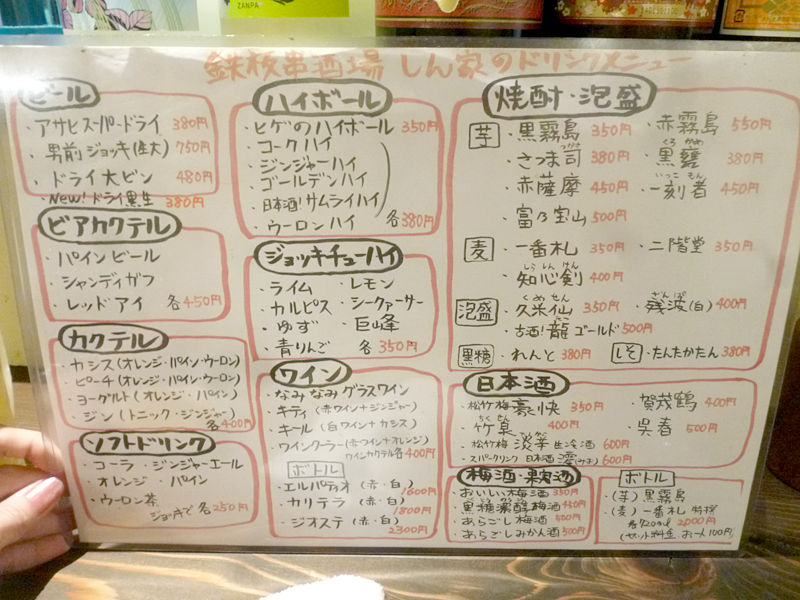 ZANPA
鉄板串酒場 しん家のドリンクメニュー
ビール
・アサヒスーパードライ 380円
・男前ジョッキ(生大) 750円
・ドライ大ビン 480円
・New! ドライ黒生 380円
ビアカクテル
・パインビール
・シャンディガフ
・レッドアイ 各450円
カクテル
・カシス(オレンジ・パイン・ウーロン)
・ピーチ(オレンジ・パイン・ウーロン)
・ヨーグルト(オレンジ・パイン)
・ジン(トニック・ジンジャー)
各400円
ソフトドリンク
・コーラ ・ジンジャーエール
・オレンジ ・パイン
・ウーロン茶
ジョッキで 各250円
ハイボール
・ヒゲのハイボール 350円
・コークハイ
・ジンジャーハイ
・ゴールデンハイ
・日本酒!サムライハイ
・ウーロンハイ 各380円
ジョッキチューハイ
・ライム ・レモン
・カルピス ・シークァーサー
・ゆず ・巨峰
・青りんご 各350円
ワイン
・なみなみグラスワイン
・キティ(赤ワイン+ジンジャー)
・キール(白ワイン+カシス)
・ワインクーラー(赤ワイン+オレンジ)
ワインカクテル各400円
ボトル
・エルパティオ(赤・白)
1600円
・カリテラ(赤・白)
1800円
・ジオステ(赤・白)
2300円
焼酎・泡盛
芋 ・黒霧島 350円 ・赤霧島 550円
つかさ くろ かめ
・さつま司 380円 ・黒甕 380円
いっ こ もん
・赤薩摩 450円 ・一刻者 450円
・富乃宝山 500円
麦 ・一番札 350円 ・二階堂 350円
しん けん
・知心剣 400円
く め せん ざん ぱ
泡盛 ・久米仙 350円 ・残波(白) 400円
・古酒!龍ゴールド 500円
黒糖 ・れんと 380円 しそ ・たんたかたん 380円
日本酒
・松竹梅 豪快 350円 ・賀茂鶴 400円
・竹泉 400円 ・呉春 500円
・松竹梅 淡華 生冷酒 600円
・スパークリング 日本酒 澪(みお) 600円
梅酒・果実酒
・おいしい梅酒 350円
・黒糖濃醇梅酒 450円
・あらごし梅酒 500円
・あらごしみかん酒 500円
ボトル
・(芋) 黒霧島
・(麦) 一番札
各720ml 2,000円
(セット料金 お一人100円)